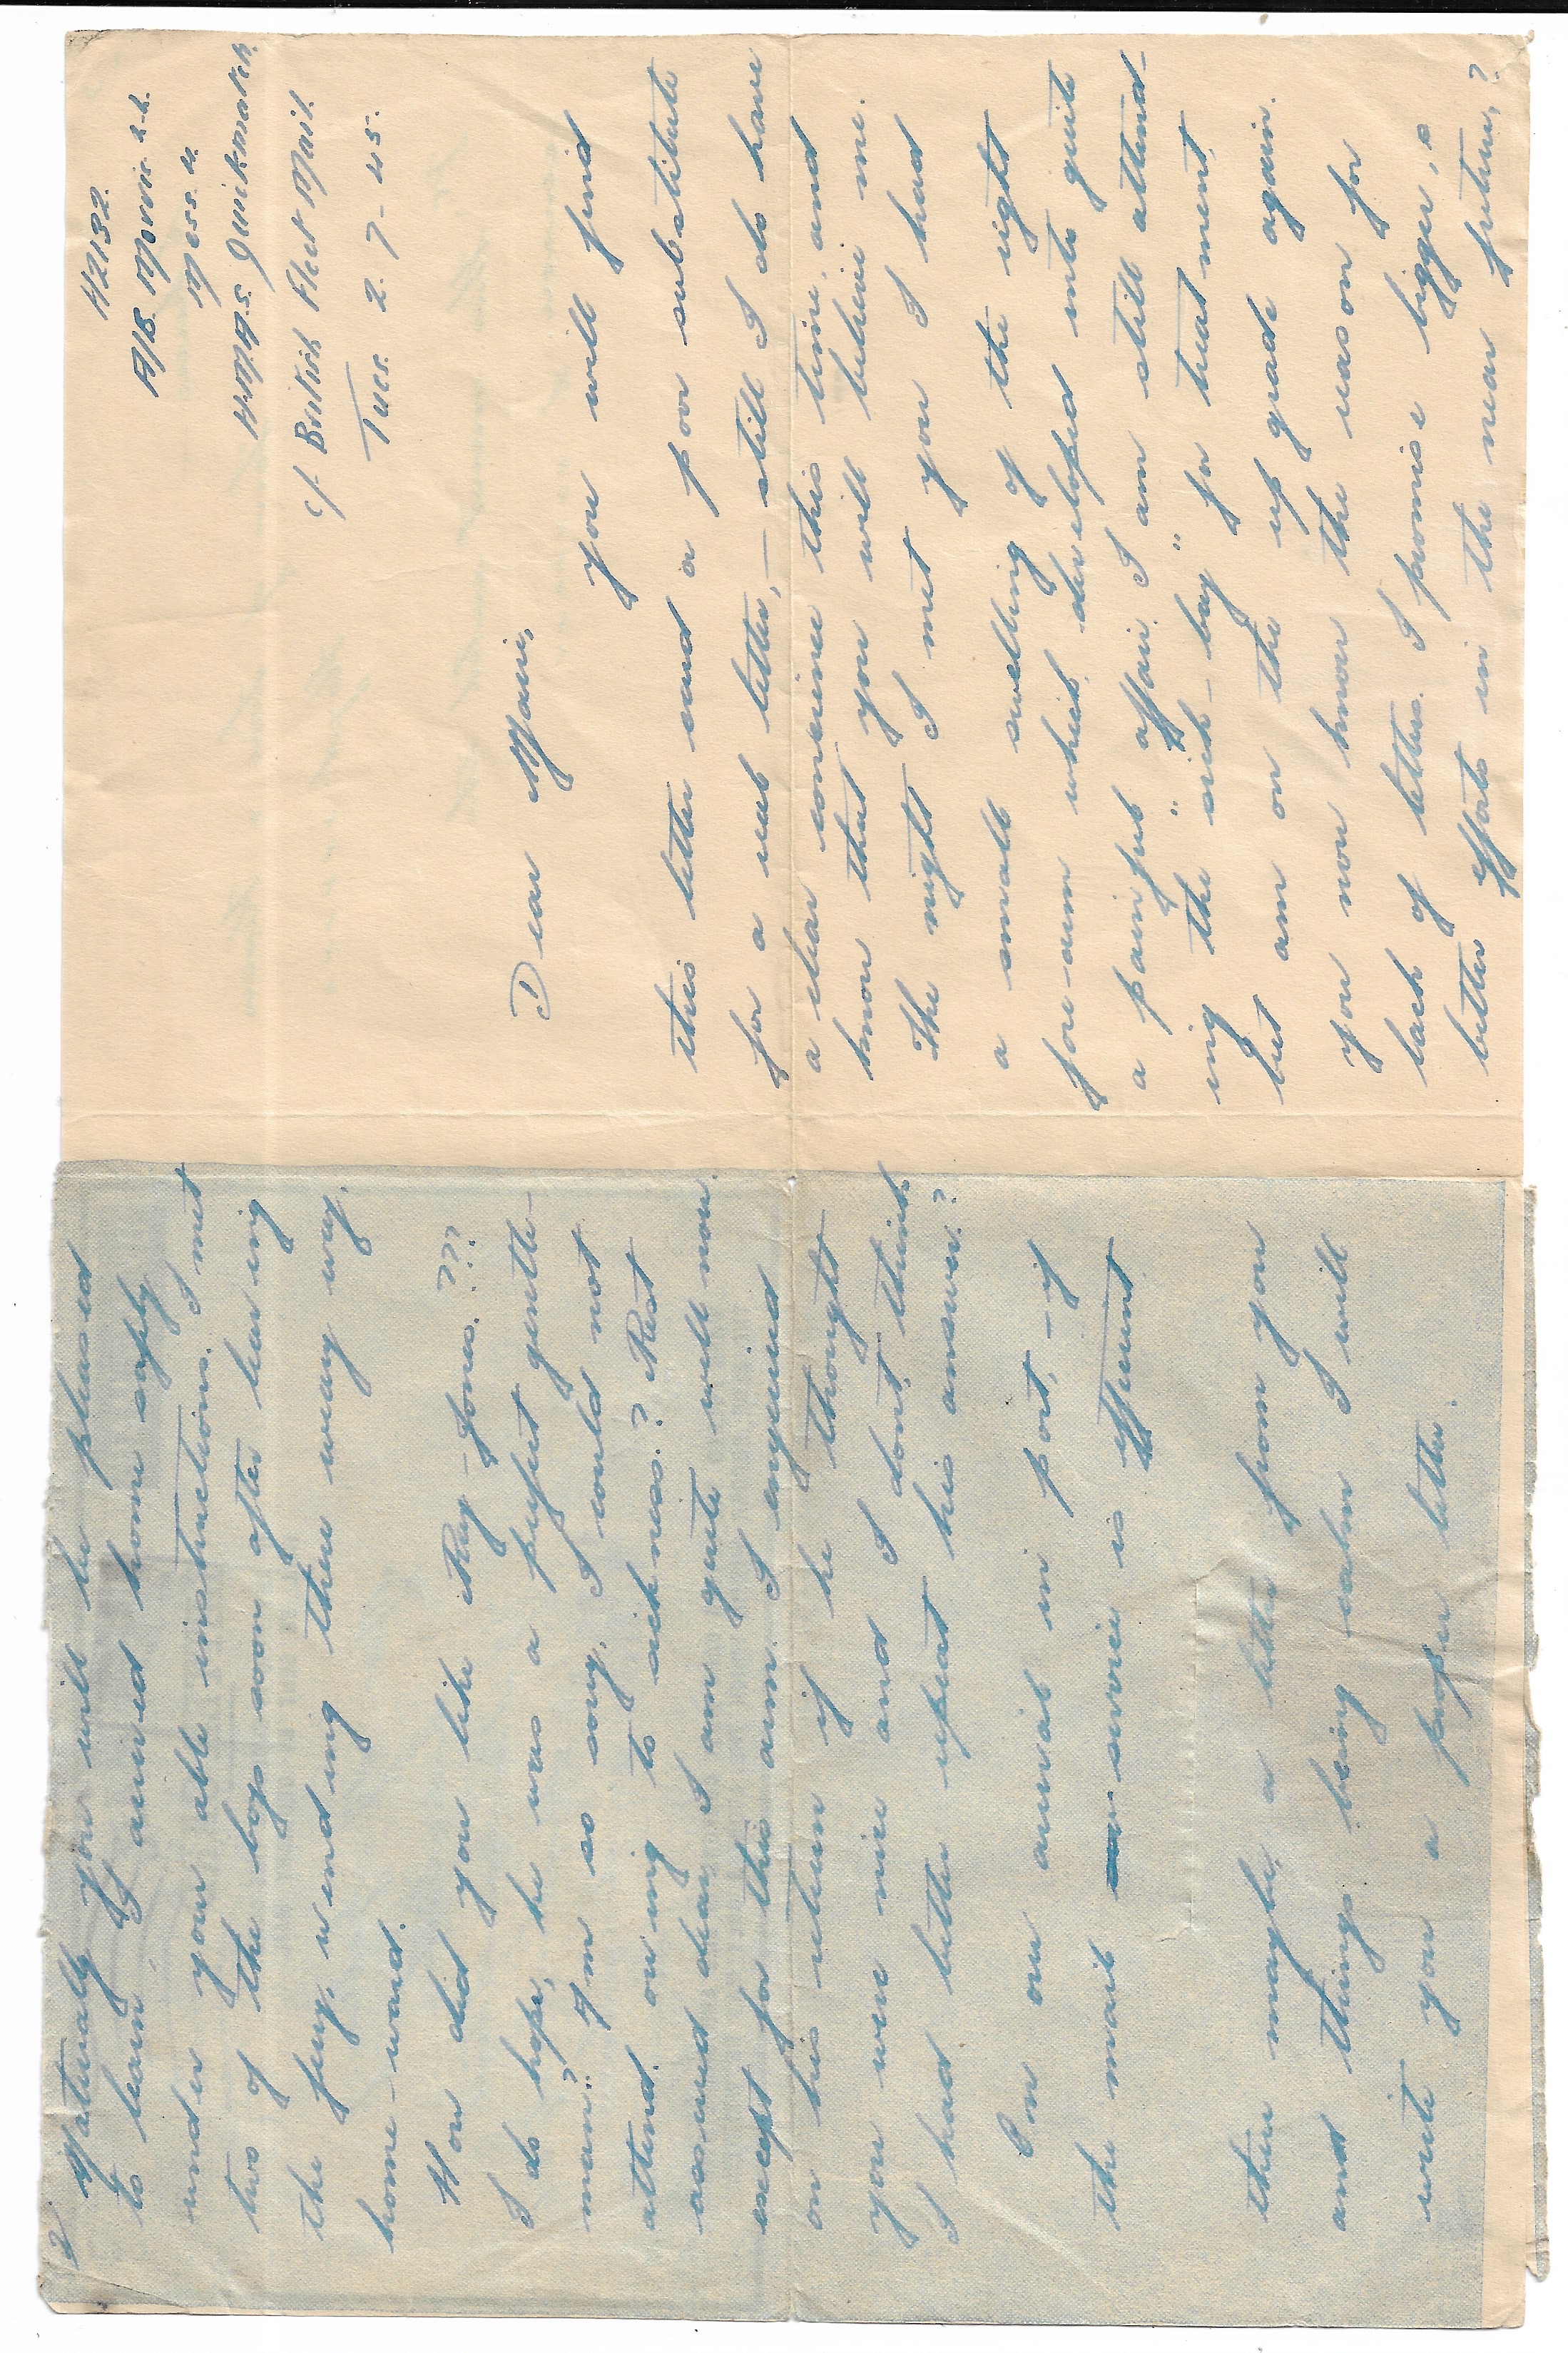 H2132.
A/B. Morris. L.L.
Mess. 4.
H.M.A.S. Quickmatch.
c/- British Fleet Mail.
Tues. 2. 7- 45.
Dear Marie,
you will find
this letter card a poor substitute
for a real letter, — still I do have
a clear conscience this time, and
know that you will believe me.
The night I met you I had
a small swelling of the right
fore-arm which developed into quite
a painful affair. I am still attend-
ing the "sick-bay" for treatment,
but am on the up grade again.
you now know the reason for
lack of letters. I promise bigger, &
better efforts in the near future,?
2/
Naturally you will be pleased
to learn I arrived home safely
under your able instructions. I met
two of the boys soon after leaving
the ferry, wending there weary way,
home-ward.
How did you like Ray-Jones. ???
I do hope, he was a perfect gentle-
man? I'm so sorry, I could not
attend. owing to sickness.? Rest
assured dear, I am quite well now.
except for this arm. I enquired
on his return if he thought
you were nice and I dont, think
I had better repeat his answer.?
On our arrival in port, -if
the mail service is efficient
there maybe, a letter from you
and things being calm I will
write you a proper letter.